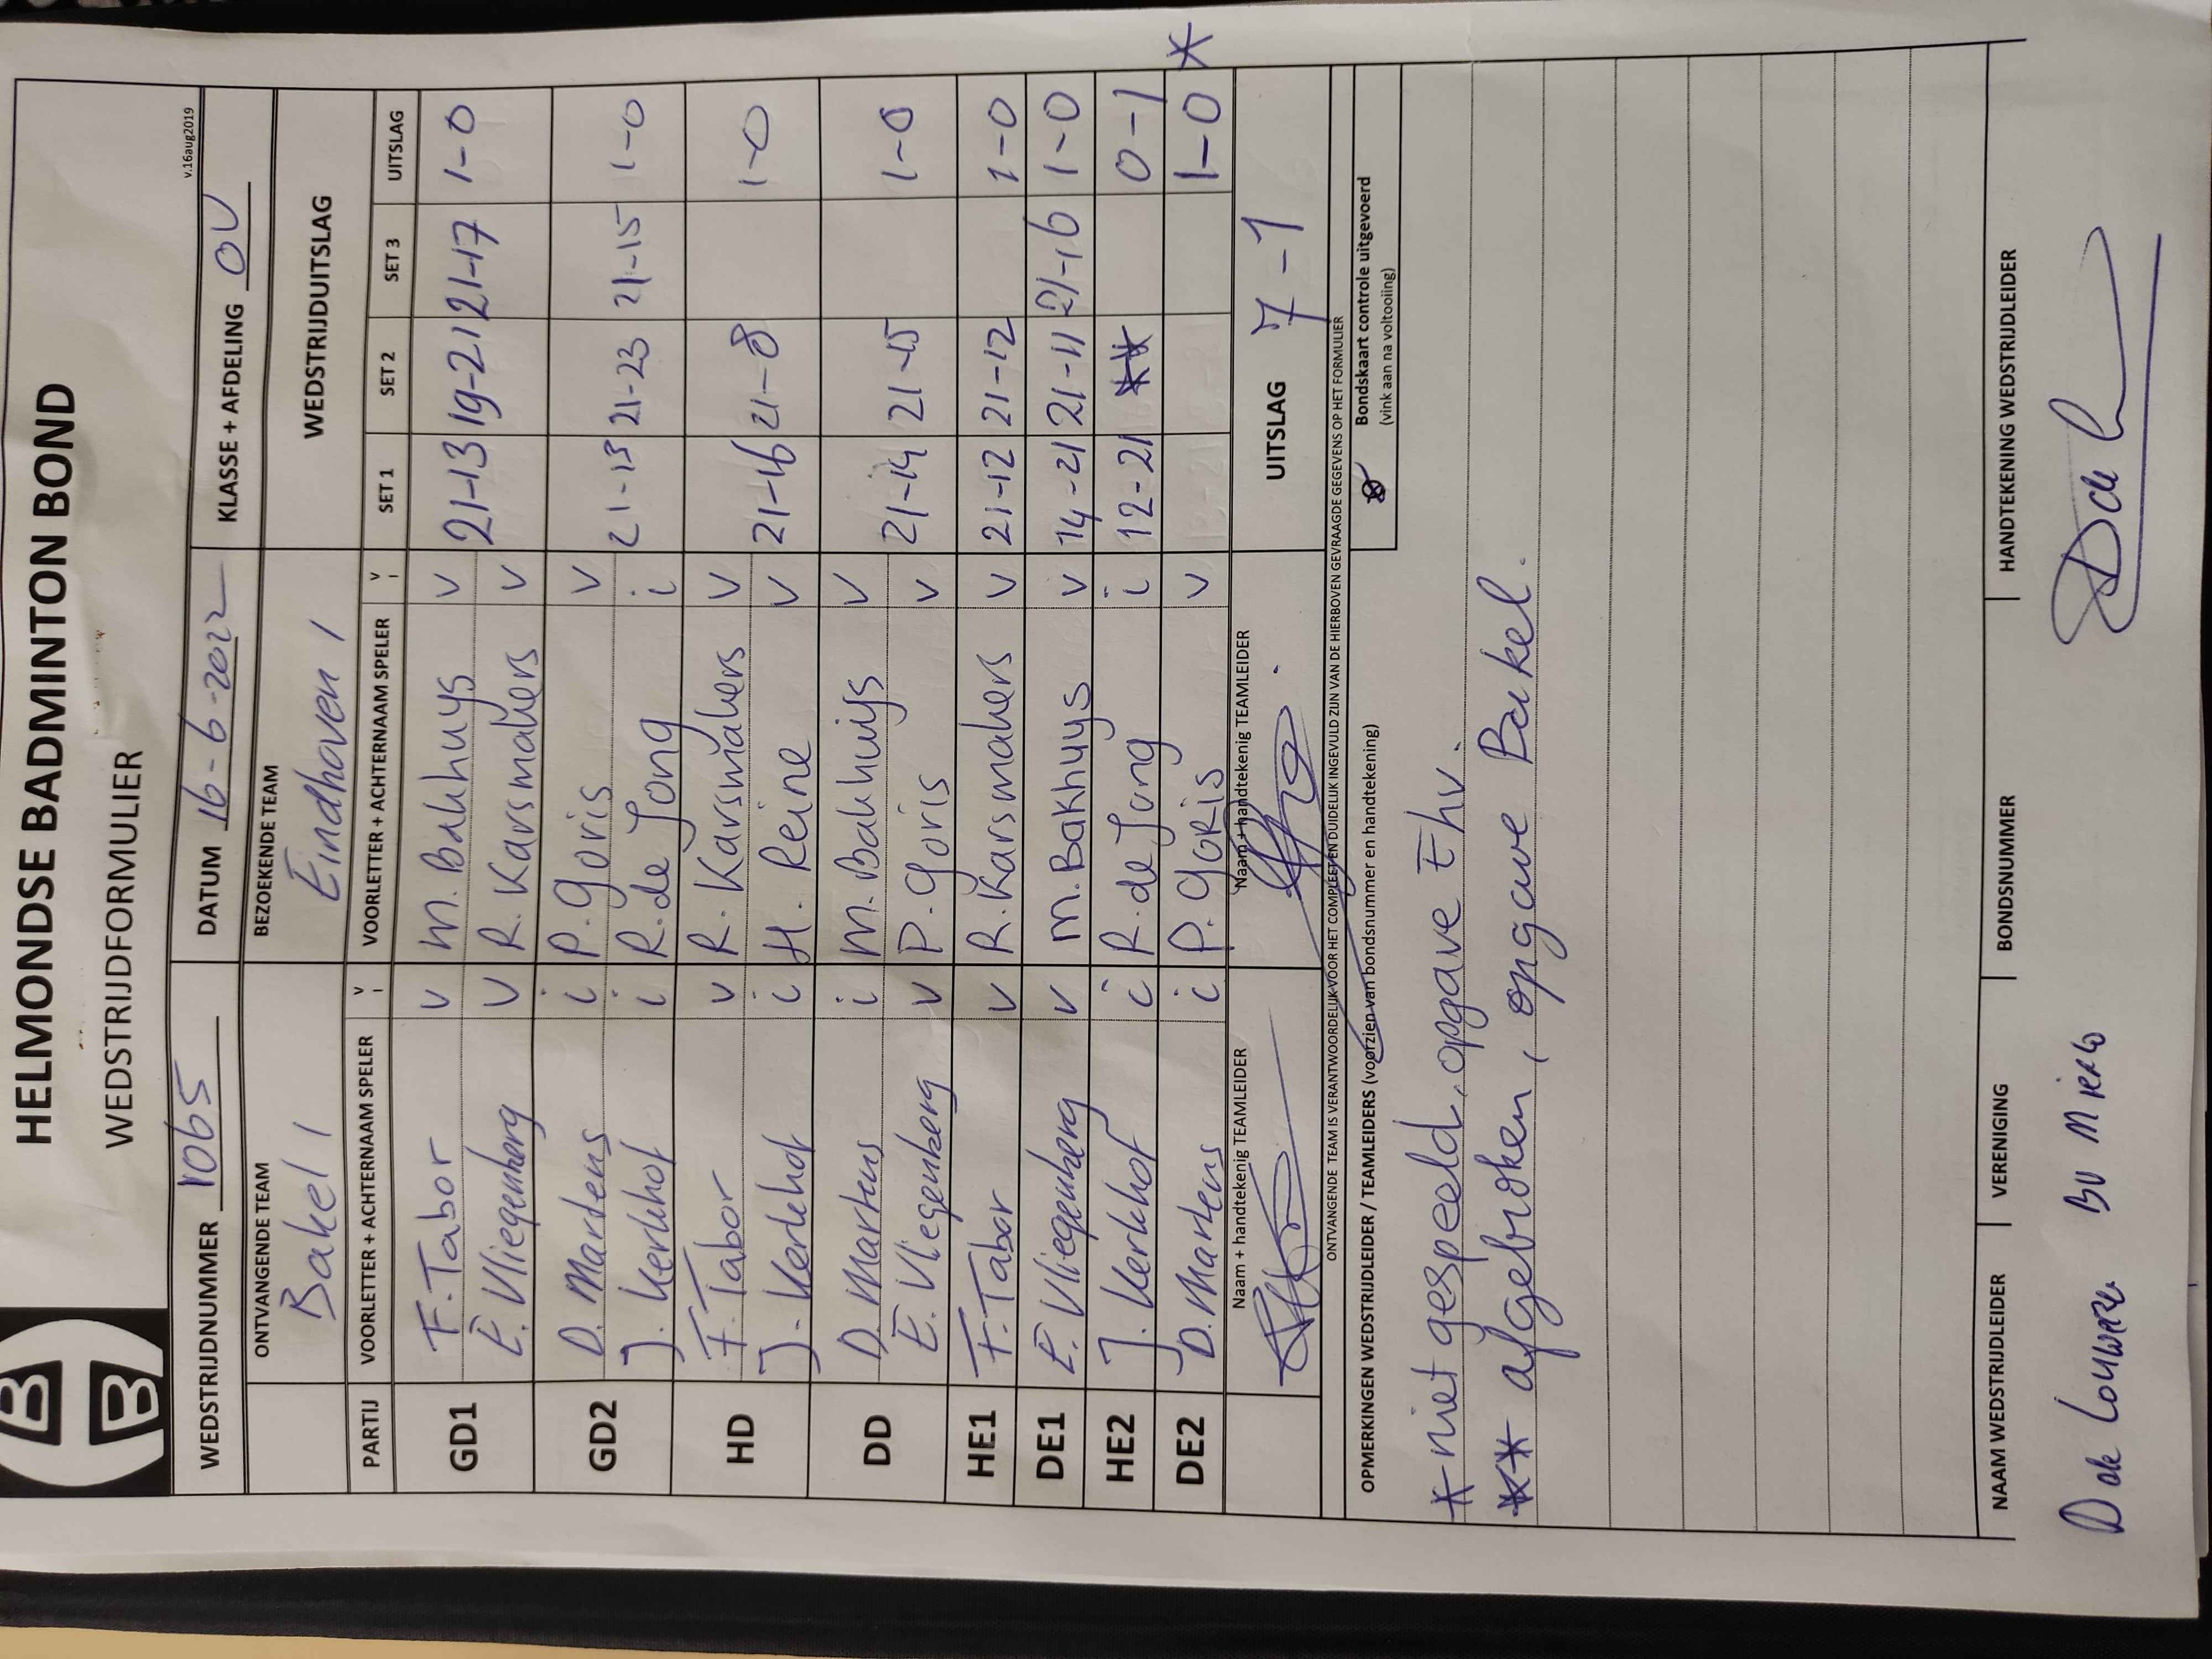 HELMONDSE BADMINTON BOND
WEDSTRIJDFORMULIER
v.16aug2019
WEDSTRIJDNUMMER 1065 DATUM 16-6-2022 KLASSE + AFDELING OV
ONTVANGENDE TEAM BEZOEKENDE TEAM WEDSTRIJDUITSLAG
Bakel 1 Eindhoven 1
PARTIJ VOORLETTER + ACHTERNAAM SPELER V I VOORLETTER + ACHTERNAAM SPELER V I SET 1 SET 2 SET 3 UITSLAG
GD1 F. Tabor V M. Bakhuys V 21-13 19-21 21-17 1-0
E. Vliegenberg V R. Karsmakers V
GD2 D. Martens i P. Goris V
J. Kerkhof i R. de Jong i 21-13 21-23 21-15 1-0
HD F. Tabor V R. Karsmakers V
J. Kerkhof i H. Reine V 21-16 21-8 1-0
DD D. Martens i M. Bakhuijs V
E. Vliegenberg V P. Goris V 21-14 21-15 1-0
HE1 F. Tabor V R. Karsmakers V 21-12 21-12 1-0
DE1 E. Vliegenberg V M. Bakhuys V 14-21 21-11 21-16 1-0
HE2 J. Kerkhof i R. de Jong i 12-21 ** 0-1
DE2 D. Martens i P. Goris V 1-0 *
Naam + handtekenig TEAMLEIDER Naam + handtekenig TEAMLEIDER UITSLAG 7-1
ONTVANGENDE TEAM IS VERANTWOORDELIJK VOOR HET COMPLEET EN DUIDELIJK INGEVULD ZIJN VAN DE HIERBOVEN GEVRAAGDE GEGEVENS OP HET FORMULIER
OPMERKINGEN WEDSTRIJDLEIDER / TEAMLEIDERS (voorzien van bondsnummer en handtekening) Bondskaart controle uitgevoerd
(vink aan na voltooiing)
* niet gespeeld, opgave Ehv.
** afgebroken, opgave Bakel.
NAAM WEDSTRIJDLEIDER VERENIGING BONDSNUMMER HANDTEKENING WEDSTRIJDLEIDER
BV Mierlo